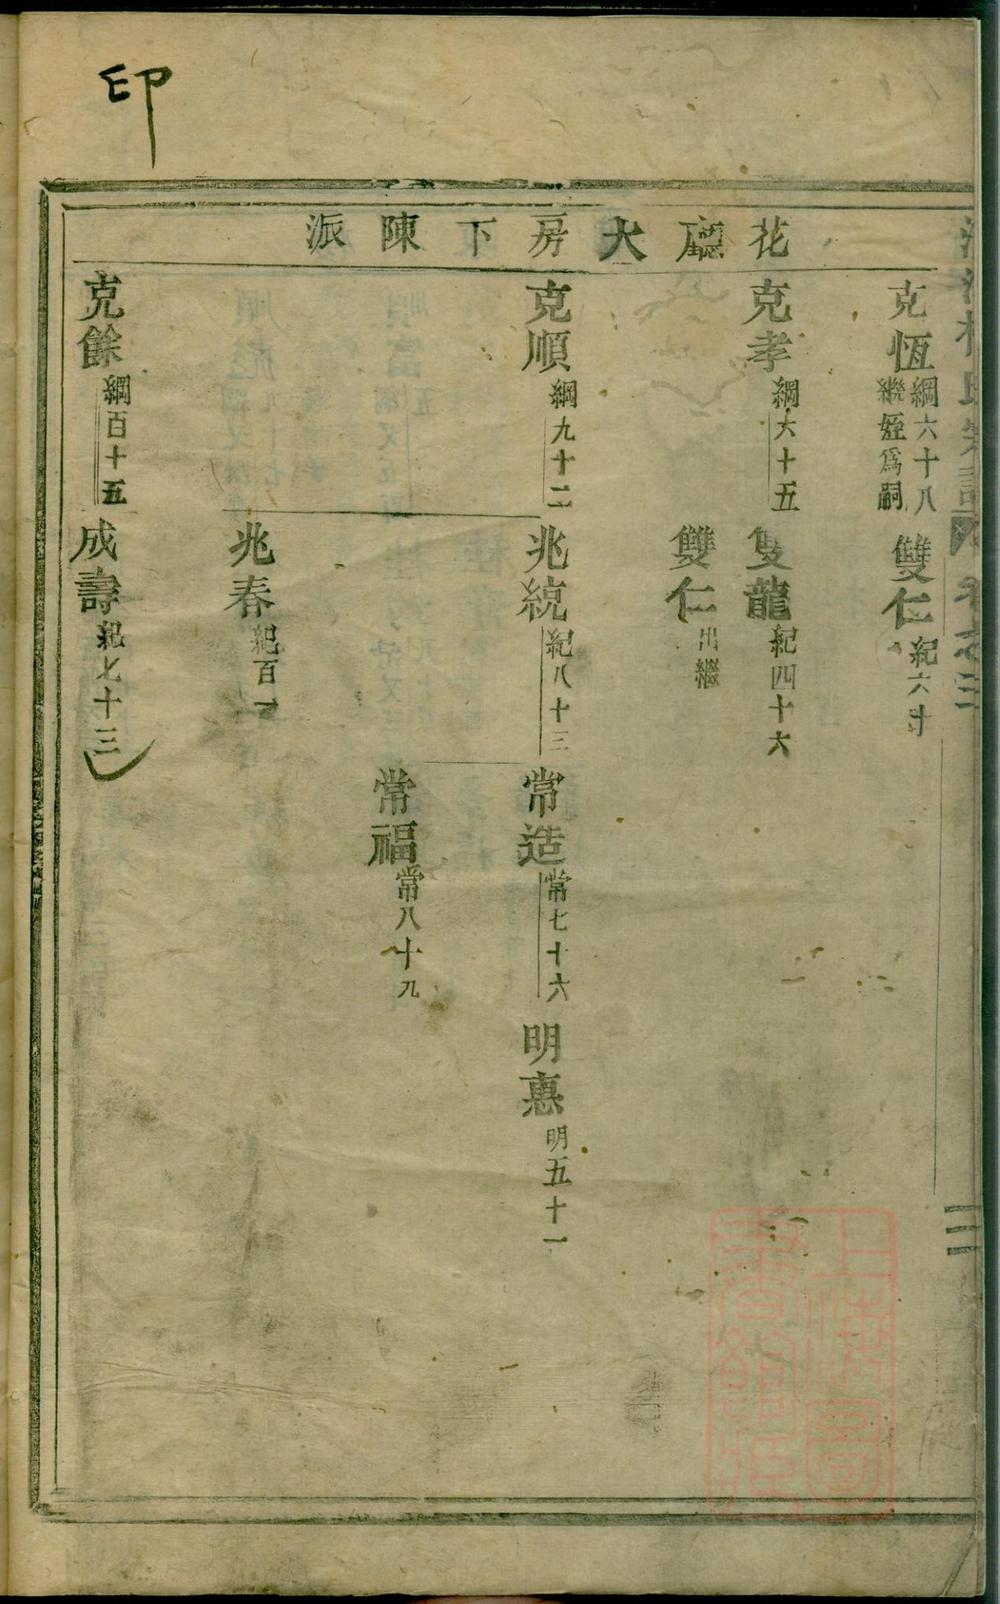 印
花廳大房下陳派
克恆 綱六十八
繼姪爲嗣
雙仁 紀六十
克孝 綱六十五
雙龍 紀四十六
雙仁 出繼
克順 綱九十二
兆統 紀八十三
常造 常七十六
明惠 明五十一
常福 常八十九
兆春 紀百一
克餘 綱百十五
成壽 紀七十三
卷之三
三
上海圖書館藏